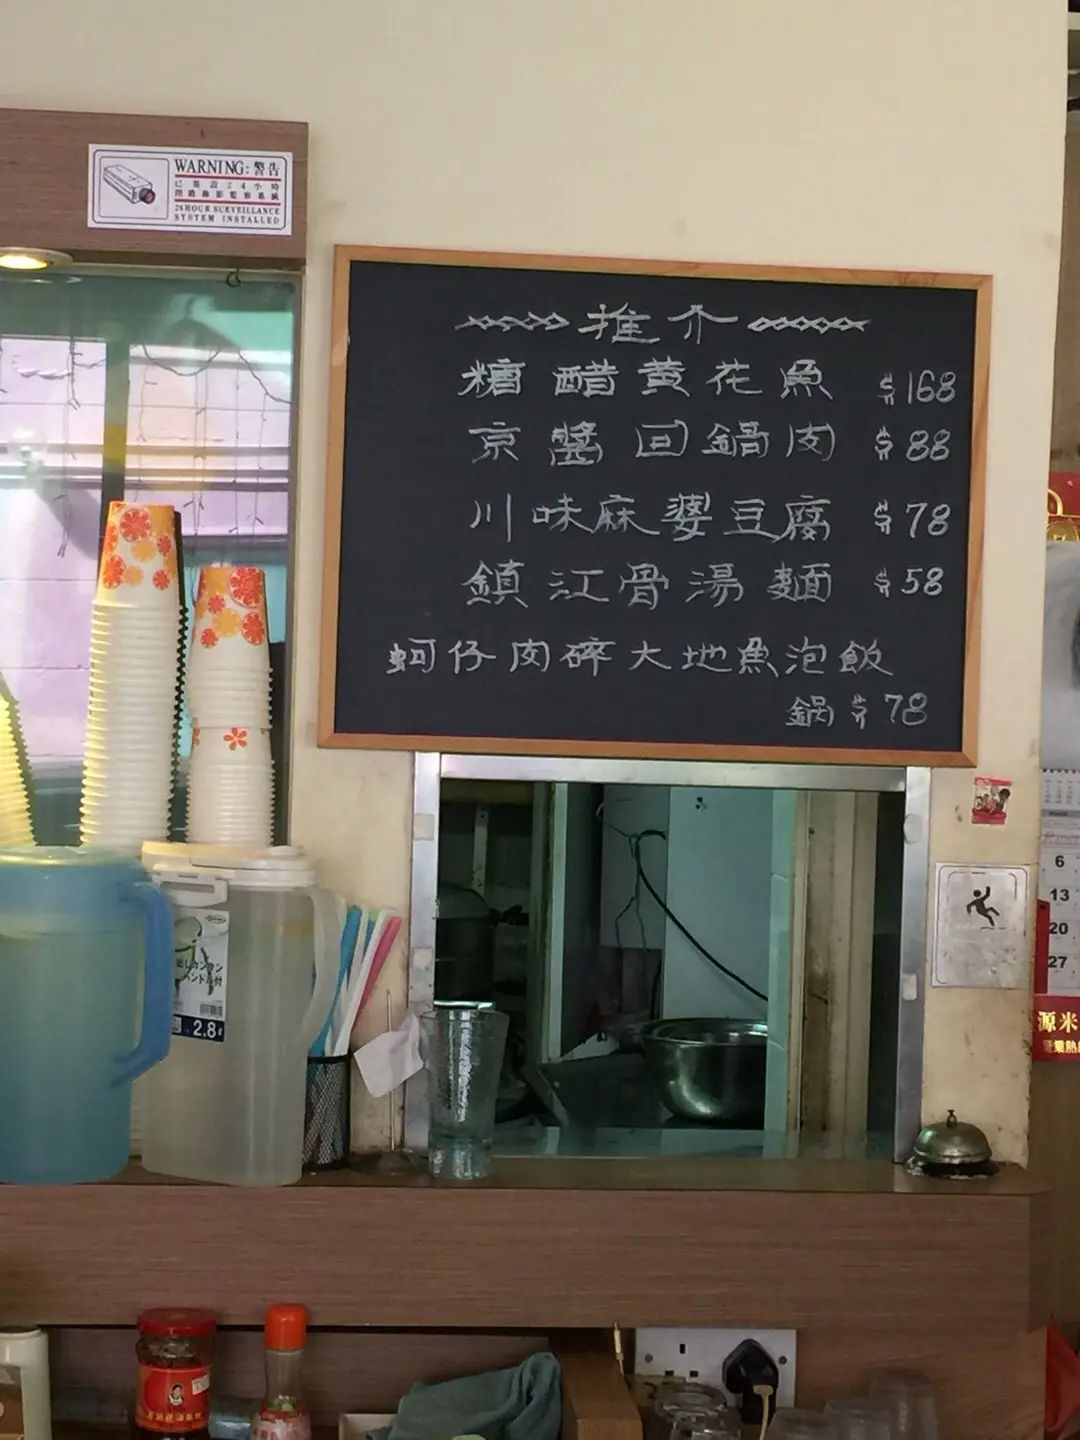 WARNING: 警告
已裝設24小時
閉路錄影監察系統
24HOUR SURVEILLANCE
SYSTEM INSTALLED
推介
糖醋黄花魚 $168
京醬回鍋肉 $88
川味麻婆豆腐 $78
鎮江骨湯麵 $58
蚵仔肉碎大地魚泡飯
鍋 $78
2.8ℓ
6
13
20
27
源米